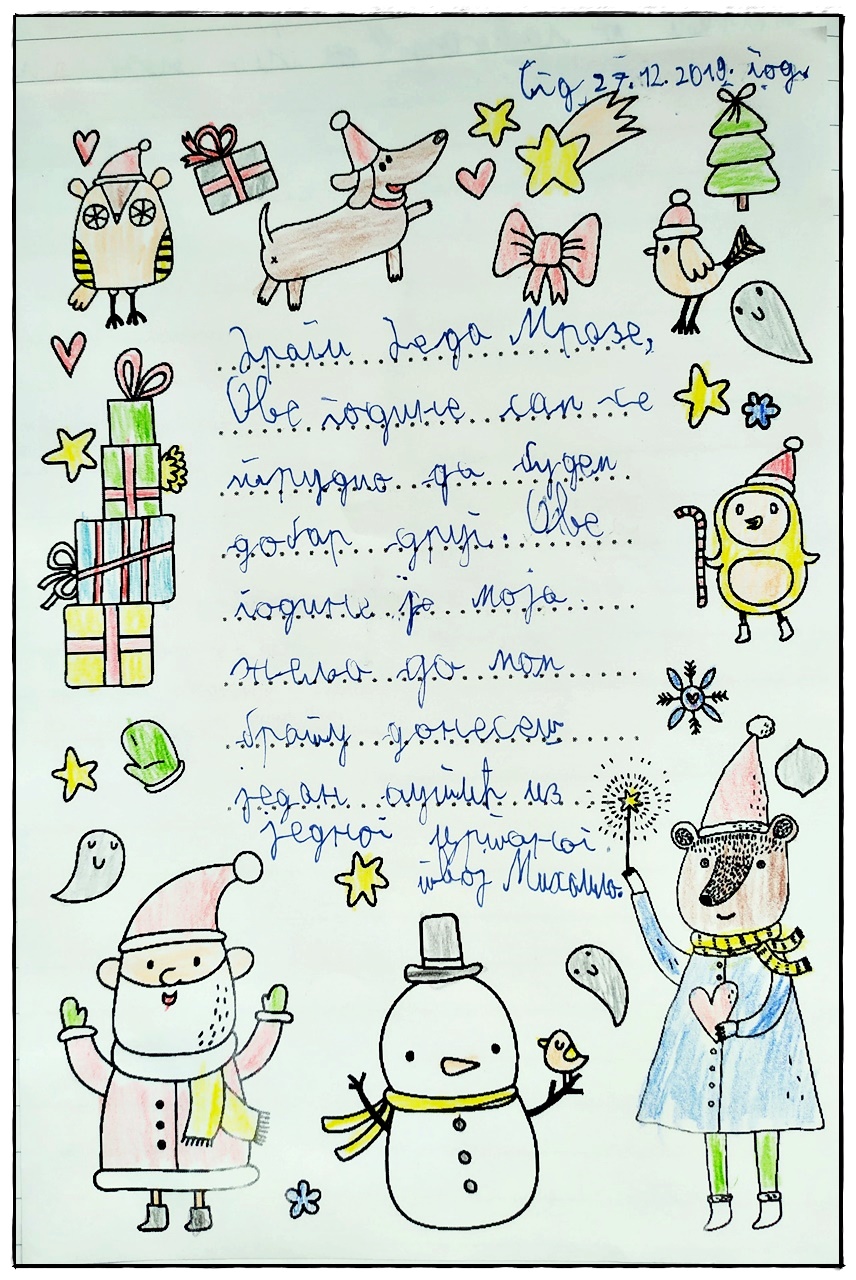 Шид, 27.12.2019. год.
Драги Деда Мразе,
Ове године сам се
трудио да будем
добар друг. Ове
године је моја
жеља да мом
брату донесеш
један аутић из
једног цртаног.
твој Михаило.